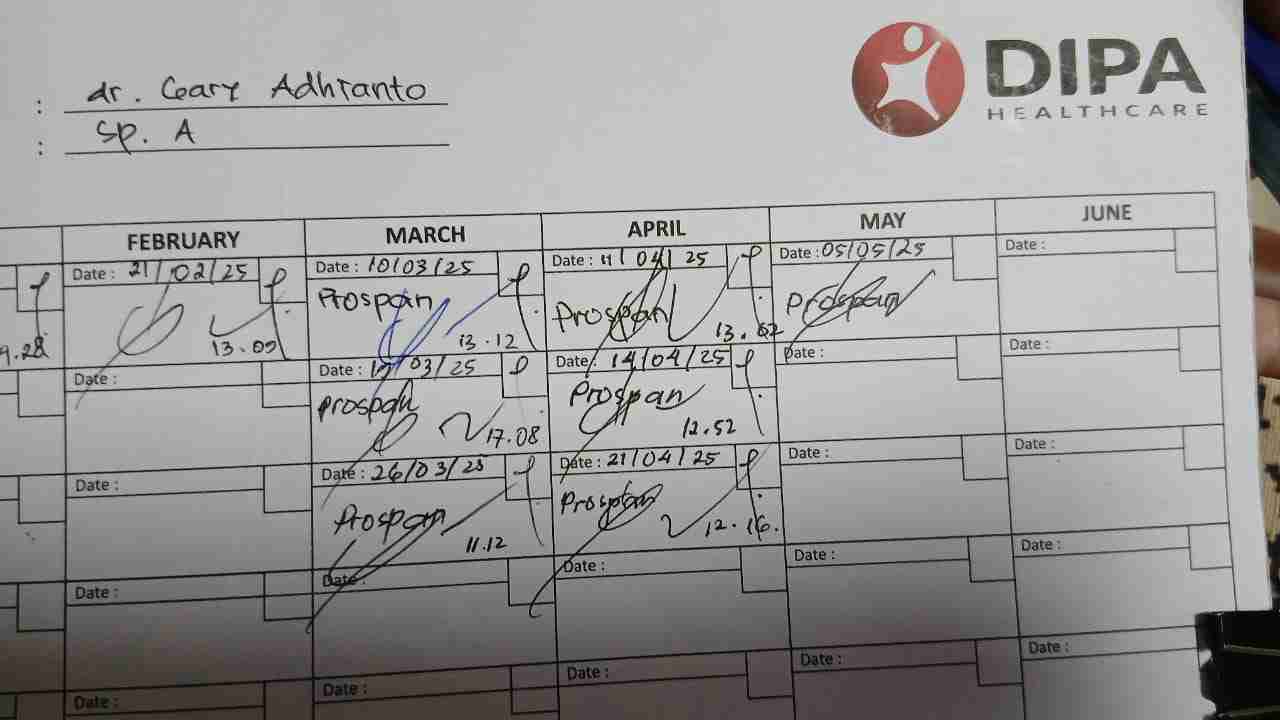 DIPA
HEALTHCARE
: dr. Geary Adhranto
: Sp. A
FEBRUARY MARCH APRIL MAY JUNE
Date : 21/02/25 Date : 10/03/25 Date : 11/04/25 Date : 05/05/25 Date :
Prospan Prospan Prospan
9.28 13.09 13.12 13.02
Date : Date : /03/25 Date : 14/04/25 Date : Date :
Prospan Prospan
17.08 12.52
Date : Date : 26/03/25 Date : 21/04/25 Date : Date :
Prospan Prospan
11.12 12.16.
Date : Date : Date : Date : Date :
Date : Date : Date : Date : Date :